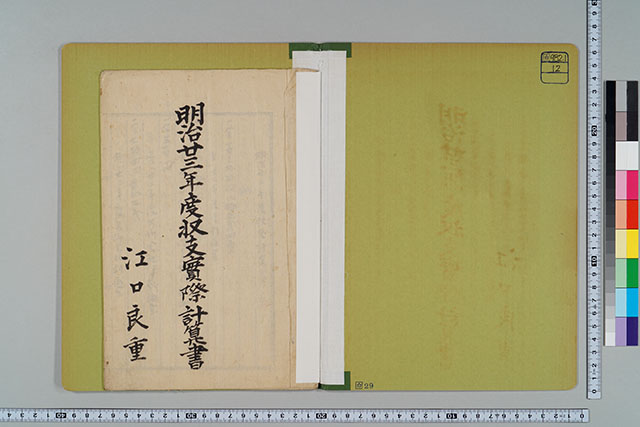 明治廿三年度収支實際計算書
江口良重
12
29